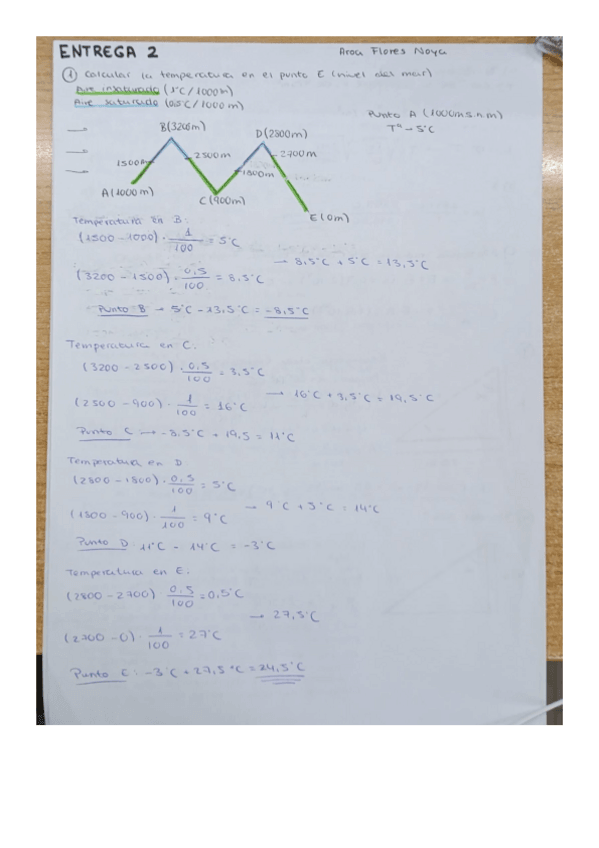 ENTREGA 2
Aroa Flores Noya
① Calcular la temperatura en el punto E (nivel das mar)
Aire insaturado (1°C/1000m)
Aire saturado (0,5°C/1000m)
Punto A (1000m s.n.m)
Tª → 5°C
B(3200m)
D(2800m)
1500m
2500m
2700m
1800m
A(1000m)
C(900m)
E(0m)
Temperatura en B:
(1500 - 1000) · 1/100 = 5°C
→ 8,5°C + 5°C = 13,5°C
(3200 - 1500) · 0,5/100 = 8,5°C
Punto B → 5°C - 13,5°C = -8,5°C
Temperatura en C:
(3200 - 2500) · 0,5/100 = 3,5°C
→ 16°C + 3,5°C = 19,5°C
(2500 - 900) · 1/100 = 16°C
Punto C → -8,5°C + 19,5 = 11°C
Temperatura en D
(2800 - 1800) · 0,5/100 = 5°C
→ 9°C + 5°C = 14°C
(1800 - 900) · 1/100 = 9°C
Punto D 11°C - 14°C = -3°C
Temperatura en E:
(2800 - 2700) 0,5/100 = 0,5°C
→ 27,5°C
(2700 - 0) · 1/100 = 27°C
Punto E: -3°C + 27,5°C = 24,5°C